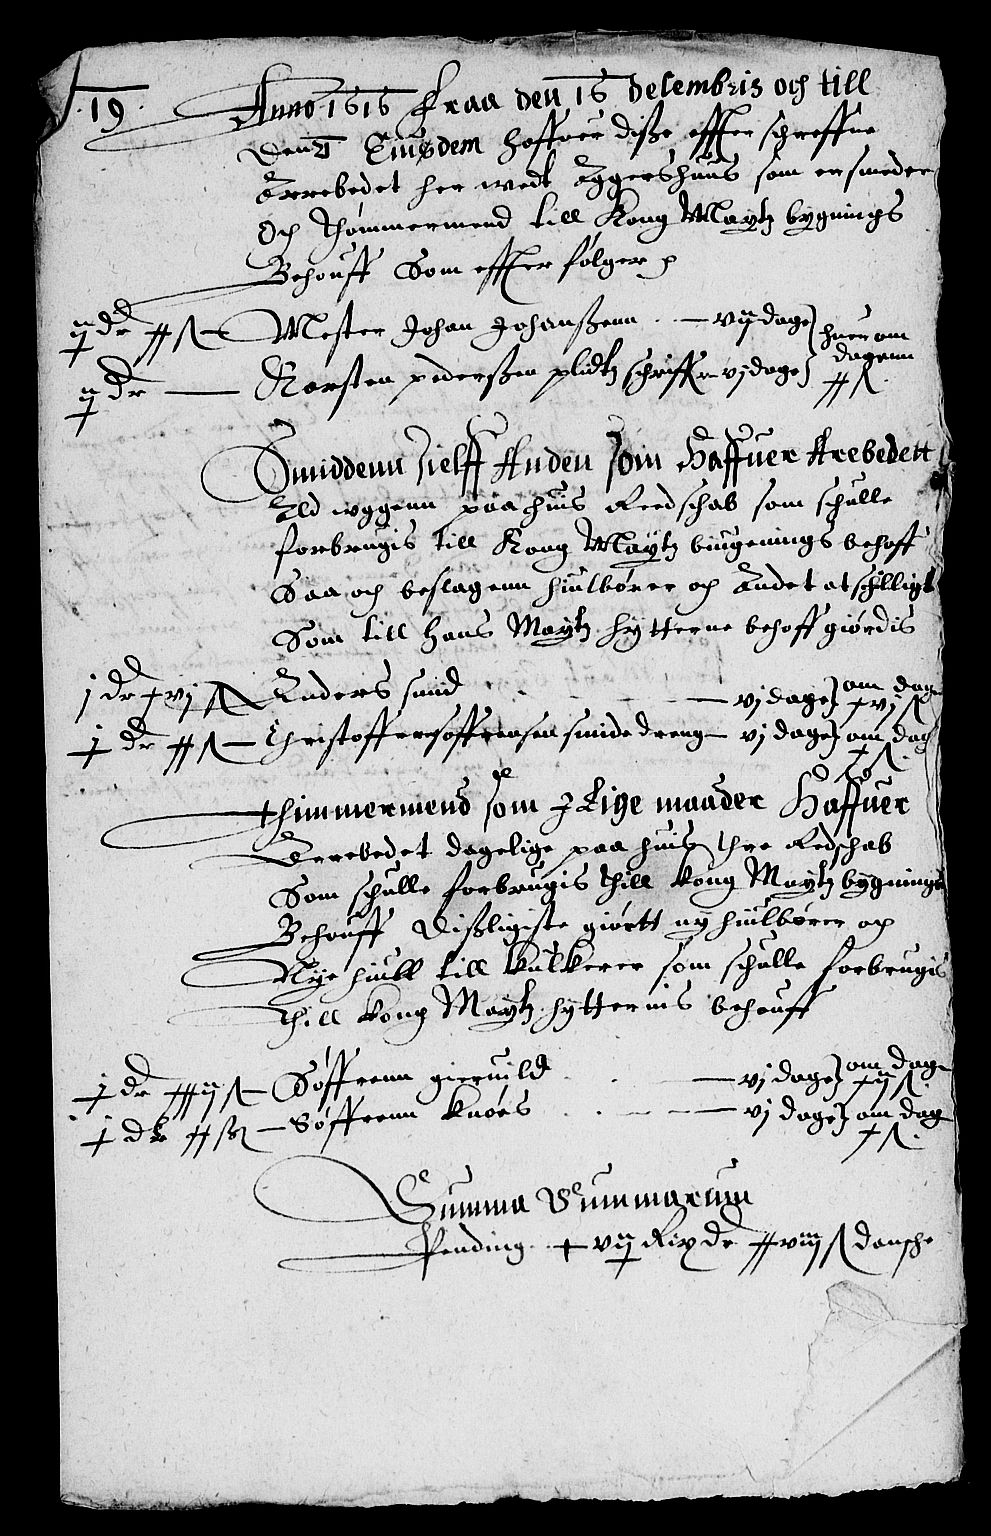 19.
Anno 1616 Fraa den 16 Decembris och till
Den Eiusdem haffuer disse effter schreffne
Arrebedet her wedt Aggershuus som er smeder
Och Thømmermend till Kong Maytz bygnings
Behouff Som effter følger
ij dr Mester Johan Johanssenn vij dage huer om
ij dr Karsten pederssen plidtz schriffr vj dage dagenn
Smiddenn sielff Anden som Haffuer Arebedett
Ald wggenn paa huis Reedschab som schulle
forbrugis till Kong Maytz biugenings behoff
Saa och beslagenn hiulbører och Andet atschilligt
Som till Hans Maytz hytterne behoff giørdis
j dr Anders smid vj dage om dag
j dr Christoffer soffrensen smidedreng vj dage om dag
Thimmermend som J Lige maader Haffuer
Arrebedet dagelige paa huis thre Redschab
Som schulle forbrugis thill kong Maytz bygnings
Behouff Disligiste giørtt ny hiulbører och
Nye hiull till kulkerer som schulle forbrugis
thill kong Maytz hytternis behouff
j dr Søffrenn vj dage om dag
j dr Søffrenn knoes vj dage om dag
Summa Summarum
Pending vij Rix dr viij ß dansche